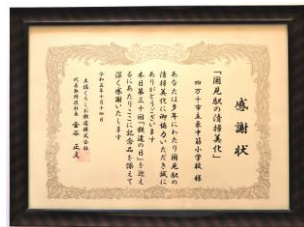 感謝状
「国見駅の清掃美化」
四万十市立東中筋小学校 様
あなたは多年にわたり国見駅の
清掃美化に御協力いただき誠に
ありがとうございます
本日第三十回「鉄道の日」を迎え
るにあたりここに記念品を添えて
深く感謝いたします
令和五年十月十四日
土佐くろしお鉄道株式会社
代表取締役社長 金谷 正文